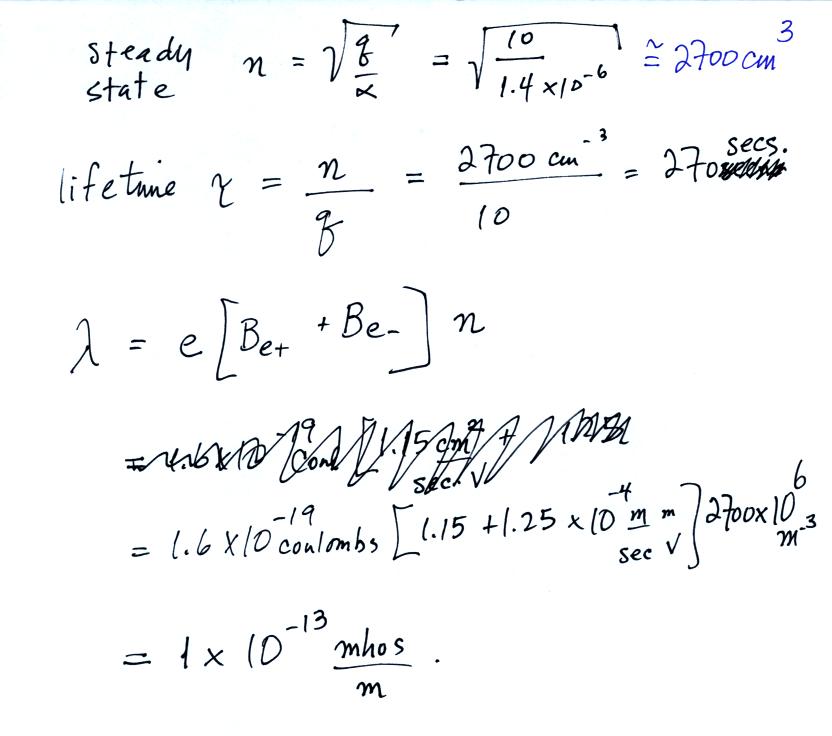 steady state n = √(q/α) = √(10/1.4 x10^-6) ≅ 2700 cm^3
lifetime τ = n/q = 2700 cm^-3/10 = 270 secs.
λ = e [Be+ + Be-] n
= 1.6 x 10^-19 coulombs [1.15 + 1.25 x 10^-4 m/sec m/V] 2700 x 10^6 m^-3
= 1 x 10^-13 mhos/m .